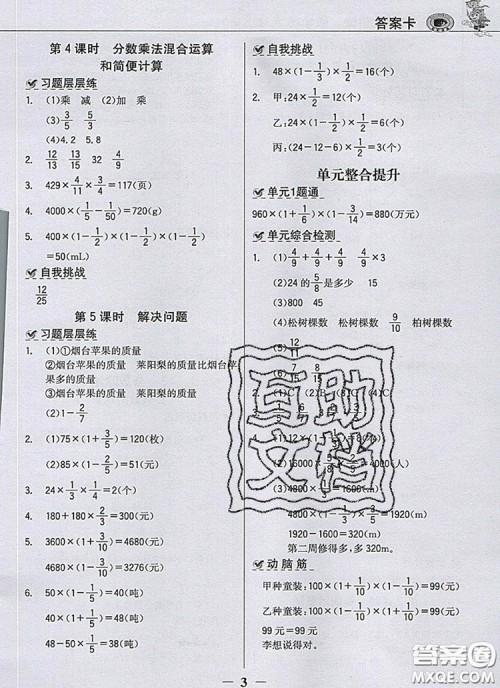 答案卡
第4课时 分数乘法混合运算
和简便计算
习题层层练
1. (1)乘 减 (2)加 乘
(3) 3/5 5/3
(4)4.2 5.8
2. 12/13 13/15 32 4/9
3. 429×4/11×3/4=117(页)
4. 4000×(1/5-1/50)=720(g)
5. 400×(1-1/2)×(1-1/2)×(1-1/2)
=50(mL)
自我挑战
12/25
第5课时 解决问题
习题层层练
1. (1)①烟台苹果的质量
②烟台苹果的质量 莱阳梨的质量比烟台苹
果多的质量
③烟台苹果的质量 莱阳梨的质量
(2)1-2/7
2. (1)75×(1+3/5)=120(枚)
(2)85×(1-2/5)=51(元)
3. 24×1/4×1/3=2(个)
4. 180+180×2/3=300(元)
5. 3600×(1+3/10)=4680(元)
4680×(1-3/10)=3276(元)
6. 50×(1-1/5)=40(吨)
40×(1+1/4)=50(吨)
48-50×1/5=38(吨)
自我挑战
1. 48×(1-1/3)×(1-1/2)=16(块)
2. 甲:24×1/2=12(个)
乙:24×(1-1/2)×1/2=6(个)
丙:(24-12-6)×1/2=3(个)
单元整合提升
单元1题通
960×(1+1/6)×(1-3/14)=880(万元)
单元综合检测
1.
(2)24的5/8是多少 15
(3)800 45
(4)松树棵数 松树棵数 9/10 柏树棵数
=4000(人)
=1920(m)
1920-1600=320(m)
第二周修得多,多320m。
动脑筋
甲种童装:100×(1+1/10)×(1-1/10)=99(元)
乙种童装:100×(1-1/10)×(1+1/10)=99(元)
99元=99元
李想说得对。
互助
文档
3
答案圈
MXQE.COM